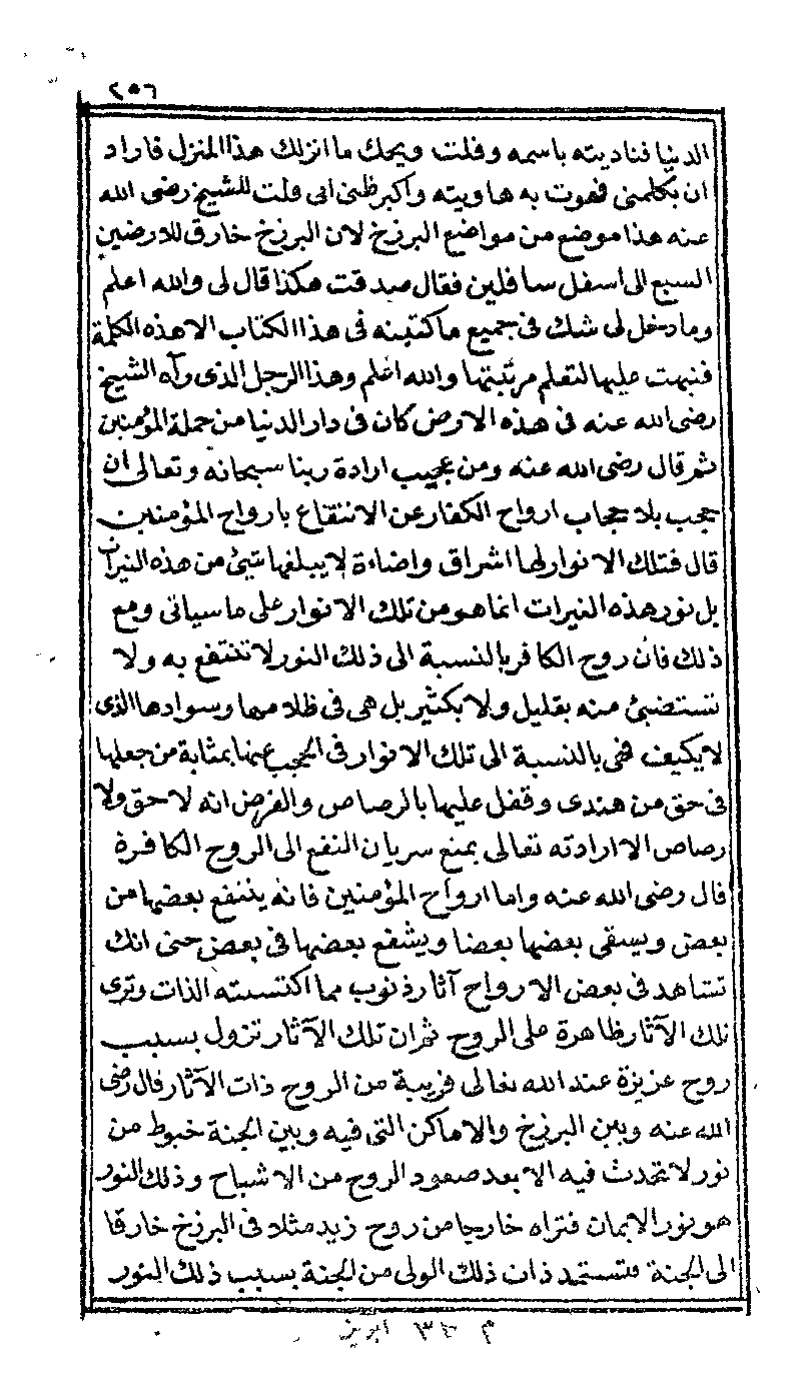 ٢٥٦
الدنيا فناديته باسمه وقلت ويحك ما انزلك هذا المنزل فاراد
ان يكلمني فهوت به هاويته واكبر ظني اني قلت للشيخ رضى الله
عنه هذا موضع من مواضع البرزخ لان البرزخ خارق للارضين
السبع الى اسفل سافلين فقال صدقت هكذا قال لى والله اعلم
وما دخل لى شك فى جميع ما كتبته فى هذا الكتاب الا هذه الكلمة
فنبهت عليها لتعلم مرتبتها والله اعلم وهذا الرجل الذى رآه الشيخ
رضى الله عنه فى هذه الارض كان فى دار الدنيا من جملة المؤمنين
ثم قال رضى الله عنه ومن عجيب ارادة ربنا سبحانه وتعالى ان
حجب بلا حجاب ارواح الكفار عن الانتفاع بارواح المؤمنين
قال فتلك الانوار لها اشراق واضاءة لا يبلغها شئ من هذه النيرات
بل نور هذه النيرات انما هو من تلك الانوار على ما سياتى ومع
ذلك فان روح الكافر بالنسبة الى ذلك النور لا تنتفع به ولا
تستضئ منه بقليل ولا بكثير بل هى فى ظلامها وسوادها الذى
لا يكيف فهى بالنسبة الى تلك الانوار فى الحجب عنها بمثابة من جعلها
فى حق من هندى وقفل عليها بالرصاص والفرض انه لا حق ولا
رصاص الا ارادته تعالى بمنع سريان النفع الى الروح الكافرة
قال رضى الله عنه واما ارواح المؤمنين فانه ينتفع بعضها من
بعض ويسقى بعضها بعضا ويشفع بعضها فى بعض حتى انك
تشاهد فى بعض الارواح آثار ذنوب مما اكتسبته الذات وترى
تلك الآثار ظاهرة على الروح ثم ان تلك الآثار تزول بسبب
روح عزيزة عند الله تعالى قريبة من الروح ذات الآثار قال رضى
الله عنه وبين البرزخ والاماكن التى فيه وبين الجنة خيوط من
نور لا تحدث فيه الا بعد صعود الروح من الاشباح وذلك النور
هو نور الايمان فتراه خارجا من روح زيد مثلا فى البرزخ خارقا
الى الجنة فتستمد ذات ذلك الولى من الجنة بسبب ذلك النور
م ٣٣ ابريز